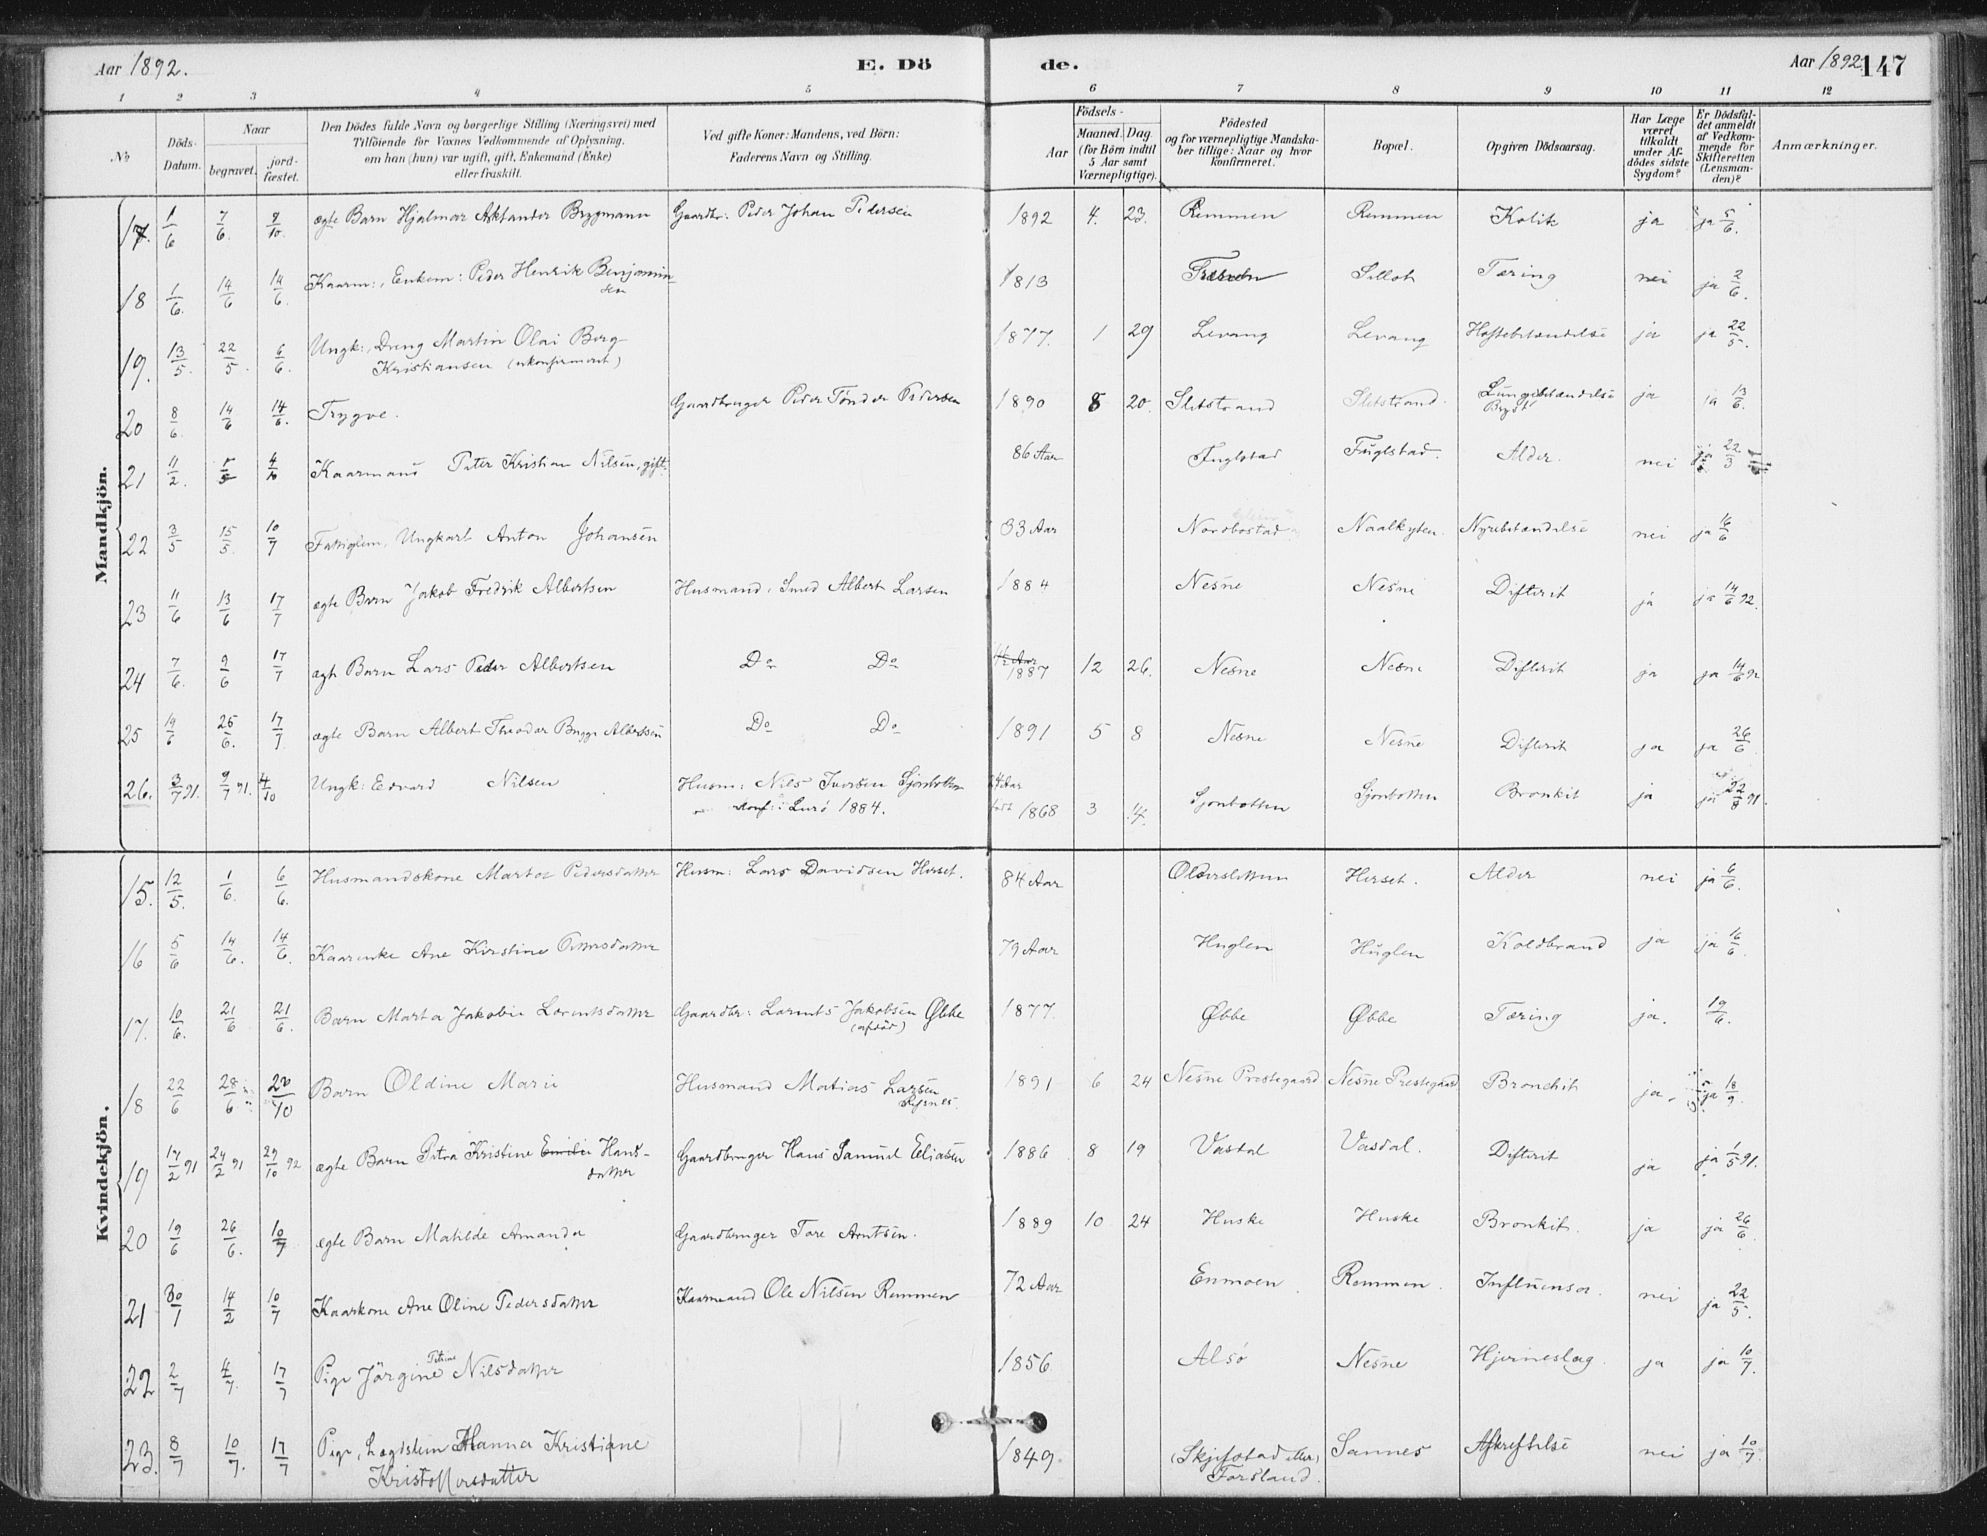 Aar 1892. E. Dö de. Aar 1892. 147
1 2 3 4 5 6 7 8 9 10 11 12
No Döds-Datum. Naar begravet. jordfæstet. Den Dödes fulde Navn og borgerlige Stilling (Næringsvei) med Tilföiende for Voxnes Vedkommende af Oplysning, om han (hun) var ugift, gift, Enkemand (Enke) eller fraskilt. Ved gifte Koner: Mandens, ved Börn: Faderens Navn og Stilling. Födsels- Aar Maaned. Dag. (for Börn indtil 5 Aar samt Værnepligtige). Födested og for værnepligtige Mandskaber tillige: Naar og hvor konfirmeret. Bopæl. Opgiven Dödsaarsag. Har Læge været tilkaldt under Afdödes sidste Sygdom? Er Dödsfaldet anmeldt af Vedkommende for Skifteretten (Lensmanden)? Anmærkninger.
Mandkjön.
17. 1/6 7/6. 9/10. ægte Barn Hjalmar Brygmann Gaardbr: Peder Johan Pedersen 1892 4. 23. Remmen Remmen Kolik ja ja 5/6.
18 1/6. 14/6 14/6. Kaarm:, Enkem: Peder Henrik Benjaminsen 1813 Sellot Tæring nei ja 2/6.
19. 13/5. 22/5. 6/6. Ungk:, Dreng Martin Olai Berg
Kristiansen (ukonfirmert) 1877. 1 29 Levang Levang Hoftebetændelse ja ja 22/5.
20 8/6. 14/6 14/6. Trygve. Gaardbruger Peder Tönder Pedersen 1890 8 20. Sletstrand Sletstrand. Lungebetændelse ja ja 13/6.
21 11/2. 5/5 4/10 Kaarmand Peter Kristian Nilsen, gift. 86 Aar Fuglstad Fuglstad. Alder. nei ja 22/3
22 3/5 15/5 10/7 Fattiglem, Ungkarl Anton Johansen 33 Aar Nordbostad Naalkyten. Nyrebetændelse nei ja 16/6
23 11/6 13/6 17/7 ægte Barn Jakob Fredrik Albertsen Husmand, Smed Albert Larsen 1884 Nesne Nesne Difterit ja ja 14/6 92.
24 7/6. 9/6 17/7 ægte Barn Lars Peder Albertsen Do Do 1887 12 26. Nesne Nesne Difterit ja ja 14/6 92
25 19/6 26/6. 17/7. ægte Barn Albert Theodor Brygge Albertsen Do Do 1891 5 8 Nesne Nesne Difterit ja ja 26/6.
26. 3/7 91. 9/7 91. 4/10 Ungk: Edvard Nilsen Husm: Nils Iversen Sjonbotten 24 Aar
Konf: i Lurö 1884. födt 1868 3 4. Sjonbotten Sjonbotten Bronkit ja ja 22/8 91.
Kvindekjön.
15. 12/5. 1/6. 6/6. Husmandskone Marta Pedersdatter Husm: Lars Davidsen Herset. 84 Aar Olderskletten Herset. Alder nei ja 6/6.
16 5/6 14/6. 14/6. Kaarenke Ane Kirstine Pettersdatter 79 Aar Huglen Huglen Koldbrand ja ja 16/6.
17. 10/6. 21/6 21/6. Barn Marta Jakobie Lorentsdatter Gaardbr: Lorents Jakobsen Øbbe
(afdöd) 1877. Øbbe Øbbe Tæring ja. 19/6.
18 22/6 28/6 20/10 Barn Oldine Marie Husmand Matias Larsen 1891 6 24 Nesne Prestegaard Nesne Prestegaard Bronchit ja. ja 18/9.
19 17/2 91 24/2 91 29/10 92 ægte Barn Petra Kristine Emilie Hansdatter Gaardbruger Hans Samuel Eliasen 1886 8 19 Vasdal Vasdal. Difterit ja ja 1/5 91.
20 19/6 26/6. 10/7 ægte Barn Matilde Amanda Gaardbruger Tore Arntsen. 1889 10 24 Huske Huske Bronkit. ja ja 26/6.
21 30/1 14/2 10/7 Kaarkone Ane Oline Pedersdatter Kaarmand Ole Nilsen Remmen 72 Aar Enmoen Remmen. Influensa. nei ja 22/5.
22 2/7 4/7. 17/7 Pige Jörgine Petrine Nilsdatter 1856. Alsö Nesne Hjerneslag. ja ja 10/7.
23. 8/7 10/7. 17/7 Pige, Lægdslem Hanna Kristiane
Kristoffersdatter 1849. (Skjefstad eller)
Forsland. Sannes Afkreftelse nei ja 10/7.